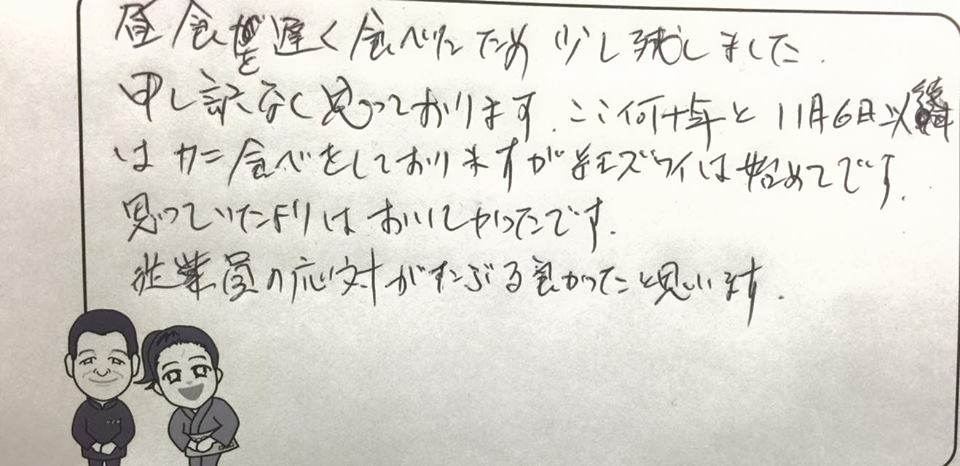 昼食を遅く食べたため少し残しました.
申し訳なく思っております. ここ何十年と11月6日以後
はカニ食べをしておりますが紅ズワイは始めてです.
思っていたよりはおいしかったです.
従業員の応対がすこぶる良かったと思います.